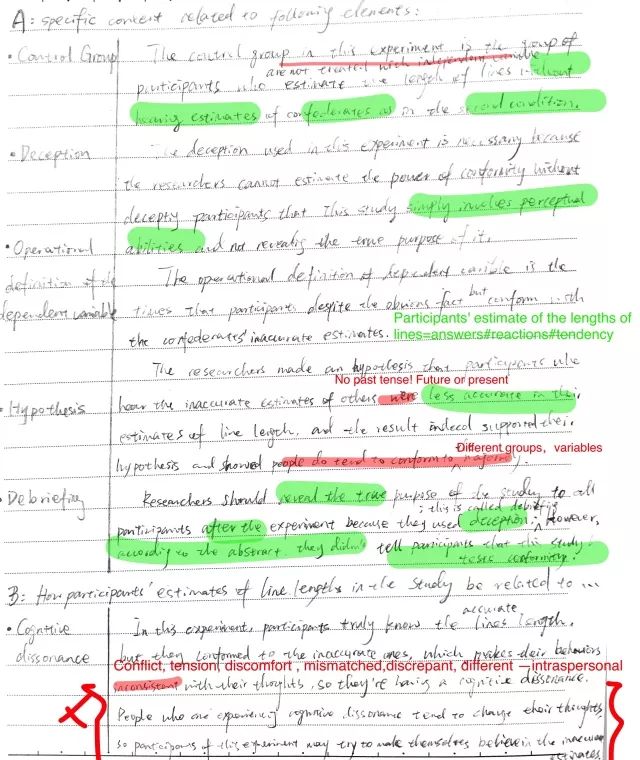 A: specific content related to following elements:
• Control Group
The control group in this experiment is the group of
are not treated with independent variable
participants who estimate the length of lines without
hearing estimates of confederates as in the second condition.
• Deception
The deception used in this experiment is necessary because
the researchers cannot estimate the power of conformity without
participants that This study simply involves perceptual
abilities and not revealing the true purpose of it.
• Operational
definition of the
dependent variable
The operational definition of dependent varible is the
times that participants despite the obvious fact but conform with
the confederates' inaccurate estimates.
Participants' estimate of the lengths of
lines=answers#reactions#tendency
The researchers made an hypothesis that participants who
No past tense! Future or present
• Hypothesis
hear the inaccurate estimates of others were less accurate in their
estimates of line length, and the result indeed supported their
Different groups, variables
hypothesis and showed people do tend to conform to majority.
• Debriefing
Researchers should reveal the true purpose of the study to all
; this is called debriefing
participants after the experiment because they used deception. However,
according to the abstract, they didn't tell participants that this study
tests conformity.
B: How participants' estimates of line lengths in the study be related to ...
• Cognitive
dissonance
accurate
In this experiment, participants truly know the lines length,
but they conformed to the inaccurate ones, which makes their behaviors
Conflict, tension, discomfort , mismatched,discrepant, different —intraspersonal
inconsistent with their thoughts, so they're having a cognitive dissonance.
People who are experiencing cognitive dissonance tend to change their thoughts,
so participants of this experiment may try to make themselves believe in the inaccurate
estimates.